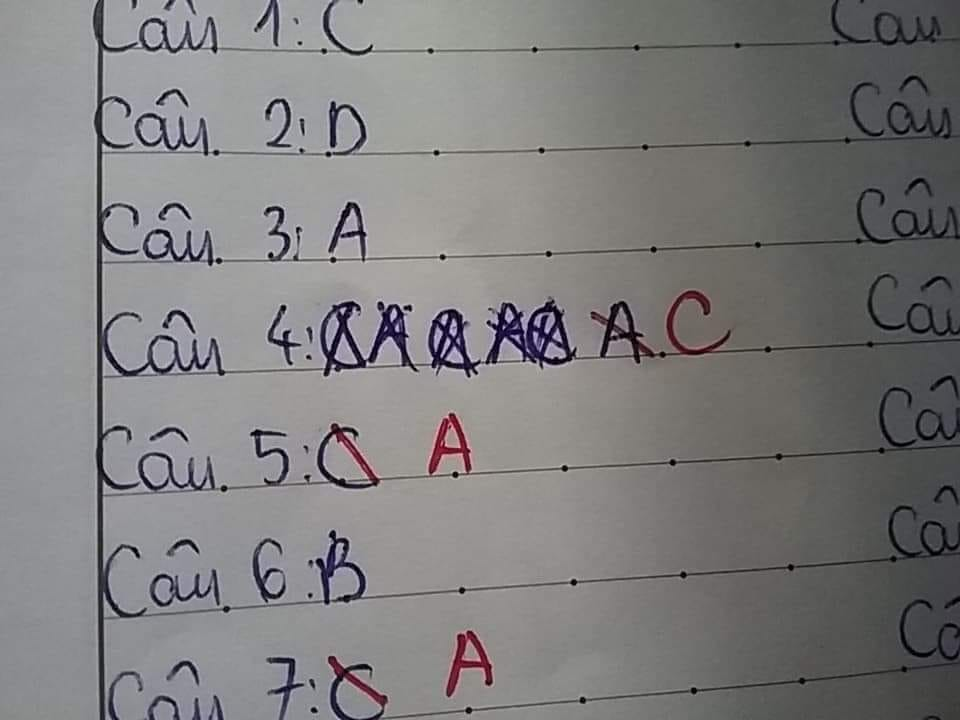 Câu 1: C Câu
Câu 2: D Câu
Câu 3: A Câu
Câu 4: C A A C Câu
Câu 5: C A Câu
Câu 6: B Câu
Câu 7: C A Câu